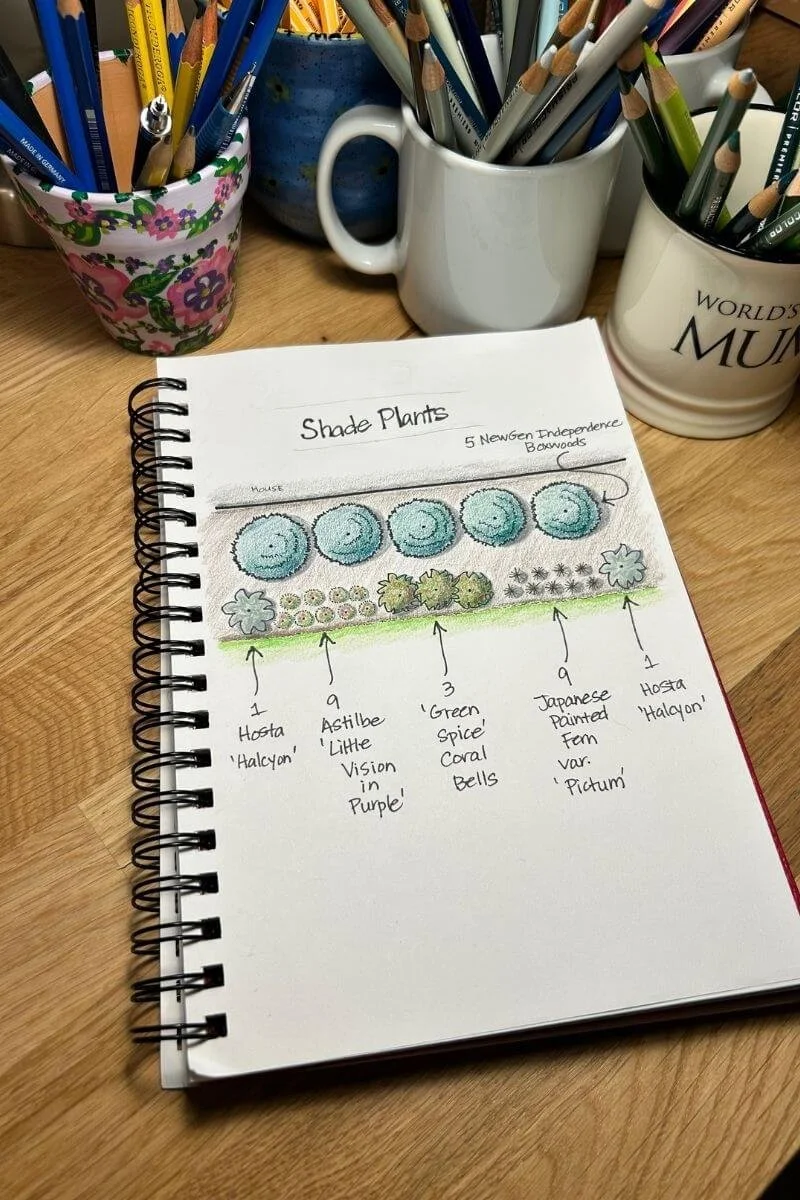 MADE IN GERMANY
WORLD'S
MUM
Shade Plants
5 NewGen Independence
Boxwoods
HOUSE
1
Hosta
'Halcyon'
9
Astilbe
'Little
Vision
in
Purple'
3
'Green
Spice'
Coral
Bells
9
Japanese
Painted
Fern
var.
'Pictum'
1
Hosta
'Halcyon'